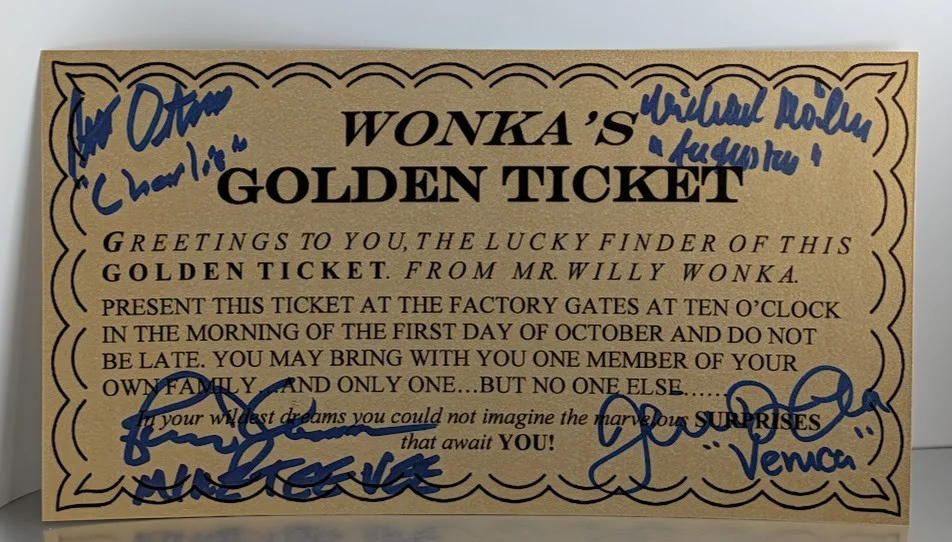 WONKA'S
GOLDEN TICKET
GREETINGS TO YOU, THE LUCKY FINDER OF THIS
GOLDEN TICKET. FROM MR. WILLY WONKA.
PRESENT THIS TICKET AT THE FACTORY GATES AT TEN O'CLOCK
IN THE MORNING OF THE FIRST DAY OF OCTOBER AND DO NOT
BE LATE. YOU MAY BRING WITH YOU ONE MEMBER OF YOUR
OWN FAMILY...AND ONLY ONE...BUT NO ONE ELSE.......
In your wildest dreams you could not imagine the marvelous SURPRISES
that await YOU!
"Charlie"
"Augustus"
MIKE TEE VEE
"Veruca"